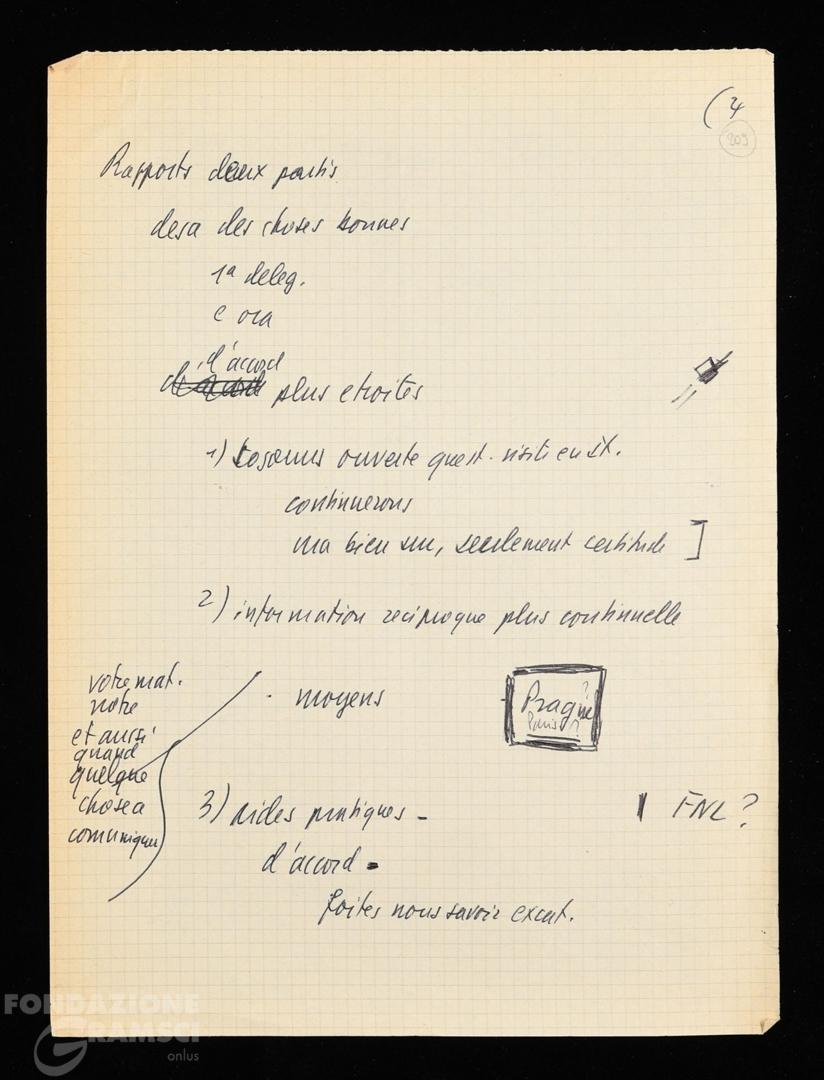 (4
209
Rapports deux partis
desa des choses bonnes
1ª deleg.
e ora
d'accord
plus etroites
1) ouverte quest. visiti en St.
continuerons
ma bien sur, seulement certitude ]
2) information reciproque plus continuelle
votre mat.
notre
et aussi
quand
quelque
chose a
comuniquer
moyens
Prague ?
Paris ?
3) aides pratiques -
FNL ?
d'accord -
faites nous savoir excat.
FONDAZIONE
GRAMSCI
onlus